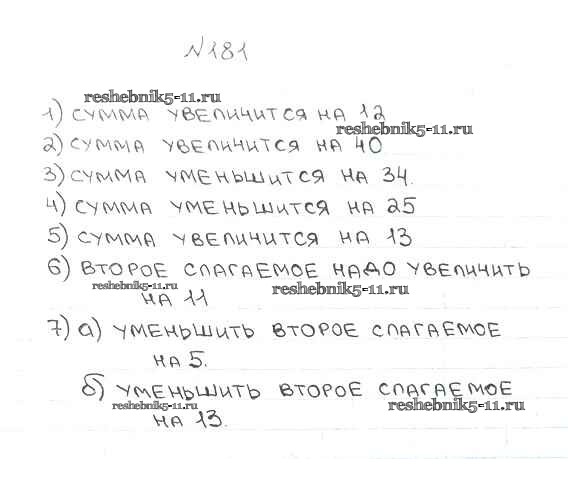 №181
reshebnik5-11.ru
1) СУММА УВЕЛИЧИТСЯ НА 12
reshebnik5-11.ru
2) СУММА УВЕЛИЧИТСЯ НА 40
3) СУММА УМЕНЬШИТСЯ НА 34.
4) СУММА УМЕНЬШИТСЯ НА 25
5) СУММА УВЕЛИЧИТСЯ НА 13
6) ВТОРОЕ СЛАГАЕМОЕ НАДО УВЕЛИЧИТЬ
reshebnik5-11.ru reshebnik5-11.ru
НА 11
7) а) УМЕНЬШИТЬ ВТОРОЕ СЛАГАЕМОЕ
НА 5.
б) УМЕНЬШИТЬ ВТОРОЕ СЛАГАЕМОЕ
reshebnik5-11.ru reshebnik5-11.ru
НА 13.